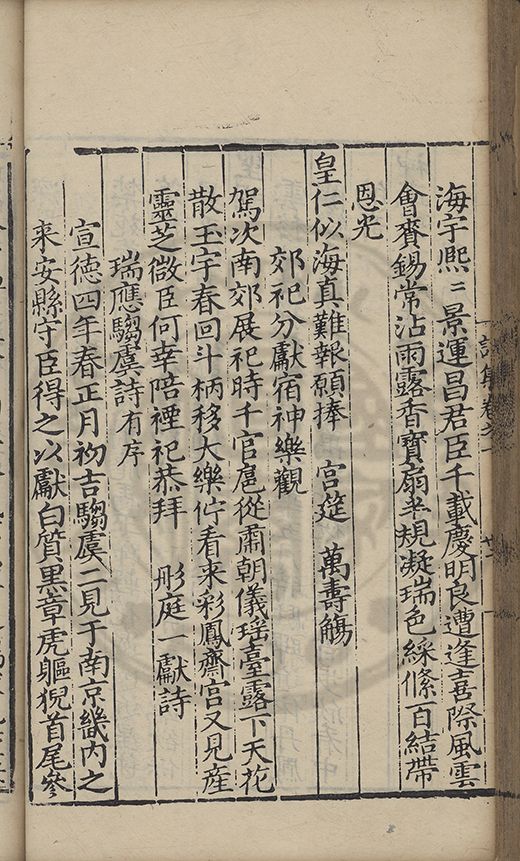 海宇熈〻景運昌君臣千載慶明良遭逢喜際風雲
會賚錫常沾雨露香寳扇半規凝瑞色綵絛百結帶
恩光
皇仁似海真難報願捧 宮筵 萬壽觴
郊祀分獻宿神樂觀
駕次南郊展祀時千官扈從肅朝儀瑤臺露下天花
散玉宇春回斗柄移大樂佇看来彩鳳齋宮又見産
靈芝微臣何幸陪禋祀恭拜 彤庭一獻詩
瑞應騶虞詩有序
宣德四年春正月初吉騶虞二見于南京畿内之
来安縣守臣得之以獻白質黒章虎軀猊首尾參